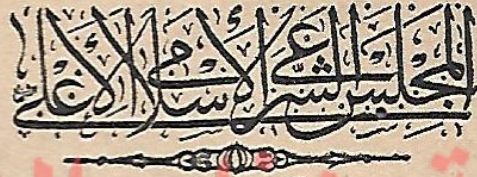 المجلس الشرعي الإسلامي الأعلى